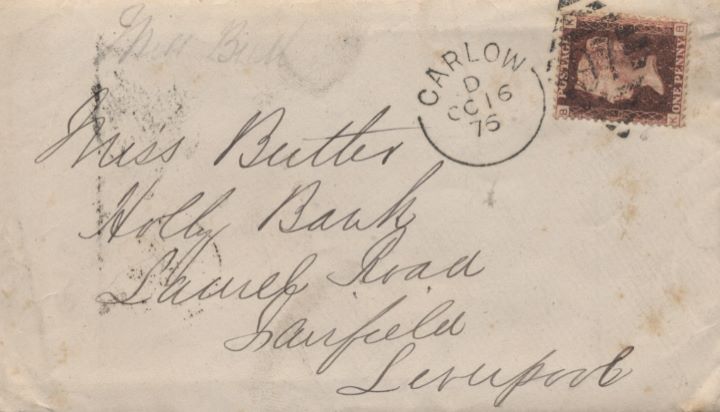 Miss Butler
CARLOW
D
OC 16
76
POSTAGE
ONE PENNY
K
B
B
K
Miss Butler
Holly Bank
Laurel Road
Fairfield
Liverpool